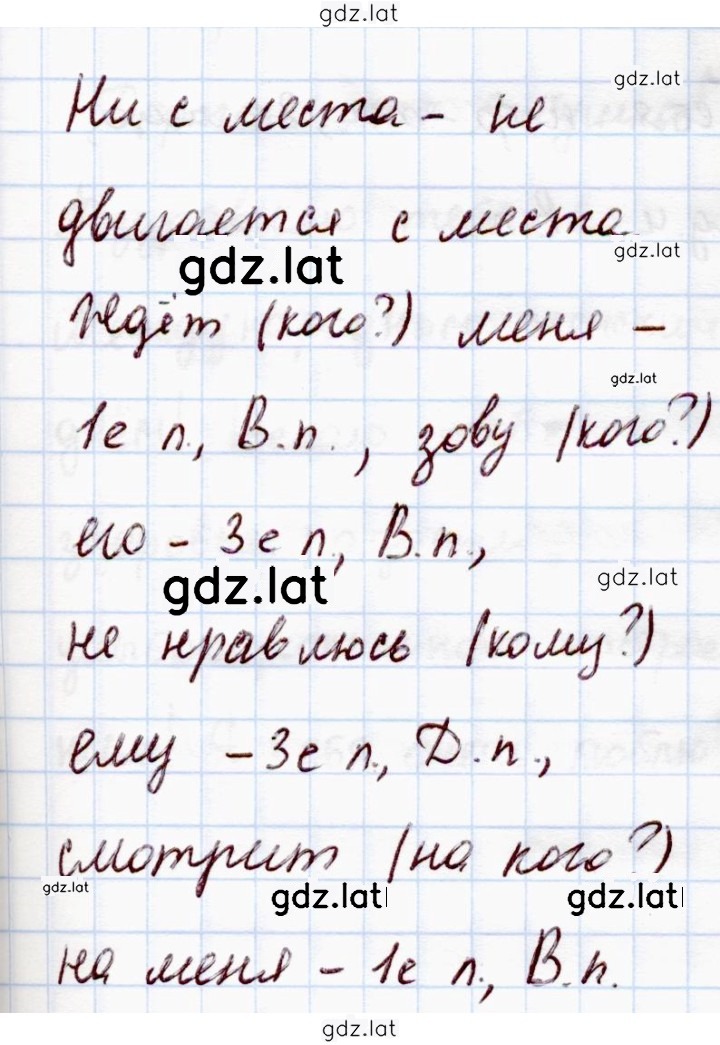 gdz.lat
gdz.lat
Ни с места - не
двигается с места
gdz.lat
gdz.lat
Ждёт (кого?) меня -
gdz.lat
1е л., В.п., зову (кого?)
его - 3е л., В.п.,
gdz.lat
gdz.lat
не нравлюсь (кому?)
ему - 3е л., Д.п.,
смотрит (на кого?)
gdz.lat
gdz.lat
gdz.lat
на меня - 1е л., В.п.
gdz.lat